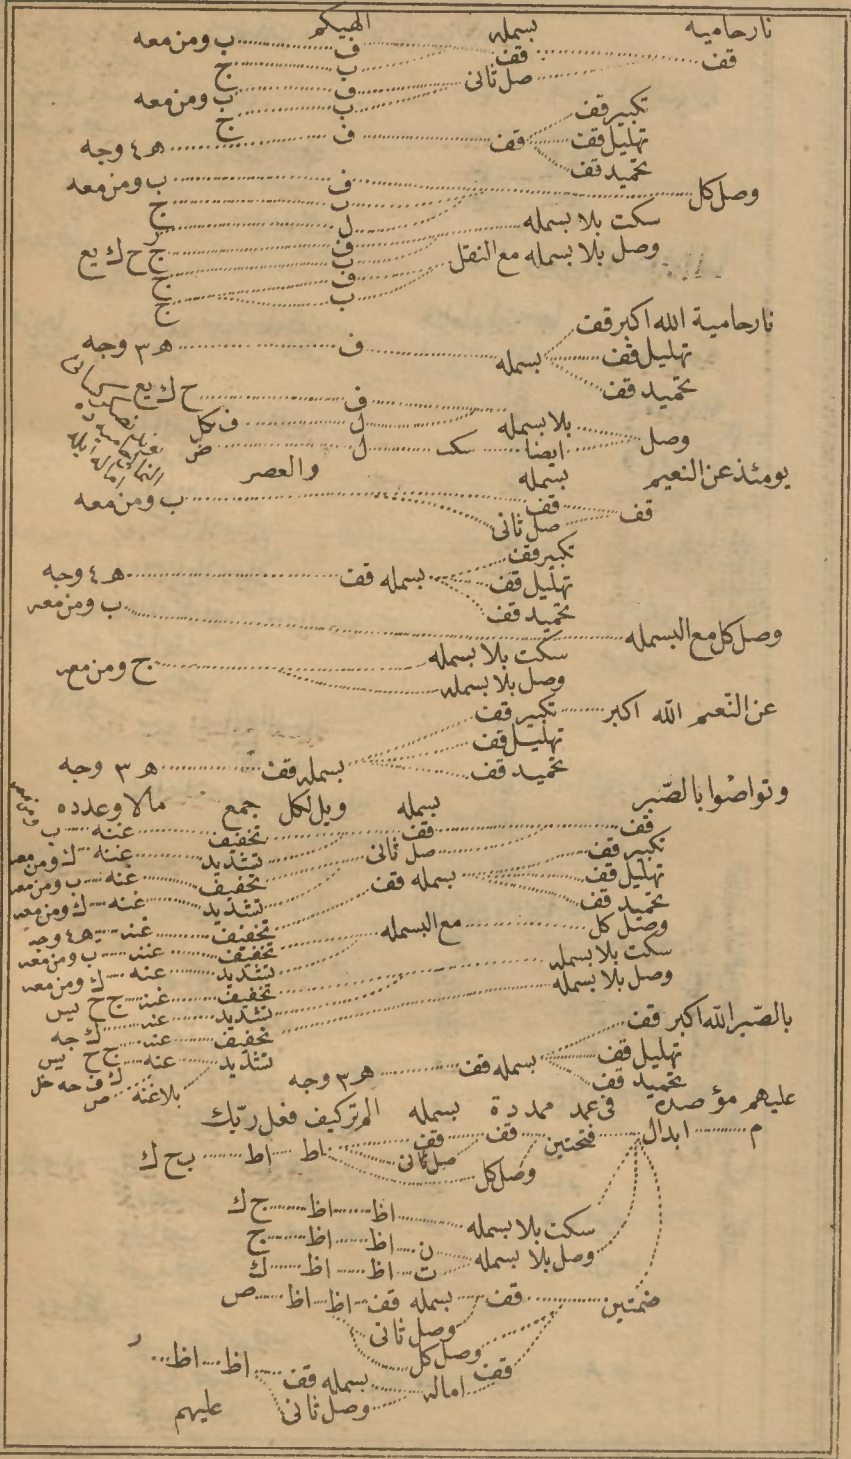 نار حاميه بسمله الهيكم
قف قف ف ب ومن معه
ب ج
صل ثانى ف ب ومن معه
ب ج
تكبير قف
تهليل قف قف ف ه ٤ وجه
تحميد قف
وصل كل ف ب ومن معه
ب ج
سكت بلا بسمله ف ج ح ك يع
وصل بلا بسمله مع النقل ف ج
ب ج
نار حامية الله اكبر قف
تهليل قف بسمله ف ه ٣ وجه
تحميد قف
ف ح ك يع
وصل بلا بسمله ل ف كل
ايضا سكت ل ض
يومئذ عن النعيم بسمله والعصر
قف قف ب ومن معه
صل ثانى
تكبير قف
تهليل قف بسمله قف ه ٤ وجه
تحميد قف
وصل كل مع البسمله ب ومن معه
سكت بلا بسمله ج ومن معه
وصل بلا بسمله
عن النعيم الله اكبر تكبير قف
تهليل قف
تحميد قف بسمله قف ه ٣ وجه
وتواصوا بالصبر بسمله ويل لكل جمع مالا وعدده
قف قف تخفيف غنه ب
صل ثانى تشديد غنه ك ومن معه
تكبير قف تخفيف غنه ب ومن معه
تهليل قف بسمله قف تشديد غنه ك ومن معه
تحميد قف تخفيف غنه ه ٤ وجه
وصل كل مع البسمله تخفيف غنه ب ومن معه
تشديد غنه ك ومن معه
سكت بلا بسمله تخفيف غنه ج ح يس
وصل بلا بسمله تشديد غنه ك جه
بالصبر الله اكبر قف تخفيف غنه ج ح يس
تهليل قف بسمله قف ه ٣ وجه تشديد غنه ك ف
تحميد قف بلا غنه ض
عليهم مؤصدة فى عمد ممددة بسمله الم تر كيف فعل ربك
م ابدال فتحتين قف قف اظ اظ ب ح ك
صل ثانى
وصل كل
سكت بلا بسمله اظ اظ ج ك
وصل بلا بسمله ن اظ اظ ج
ت اظ اظ ك
ضمتين قف بسمله قف اظ اظ ص
وصل ثانى
وصل كل
قف اماله بسمله قف اظ اظ ر
وصل ثانى
عليهم